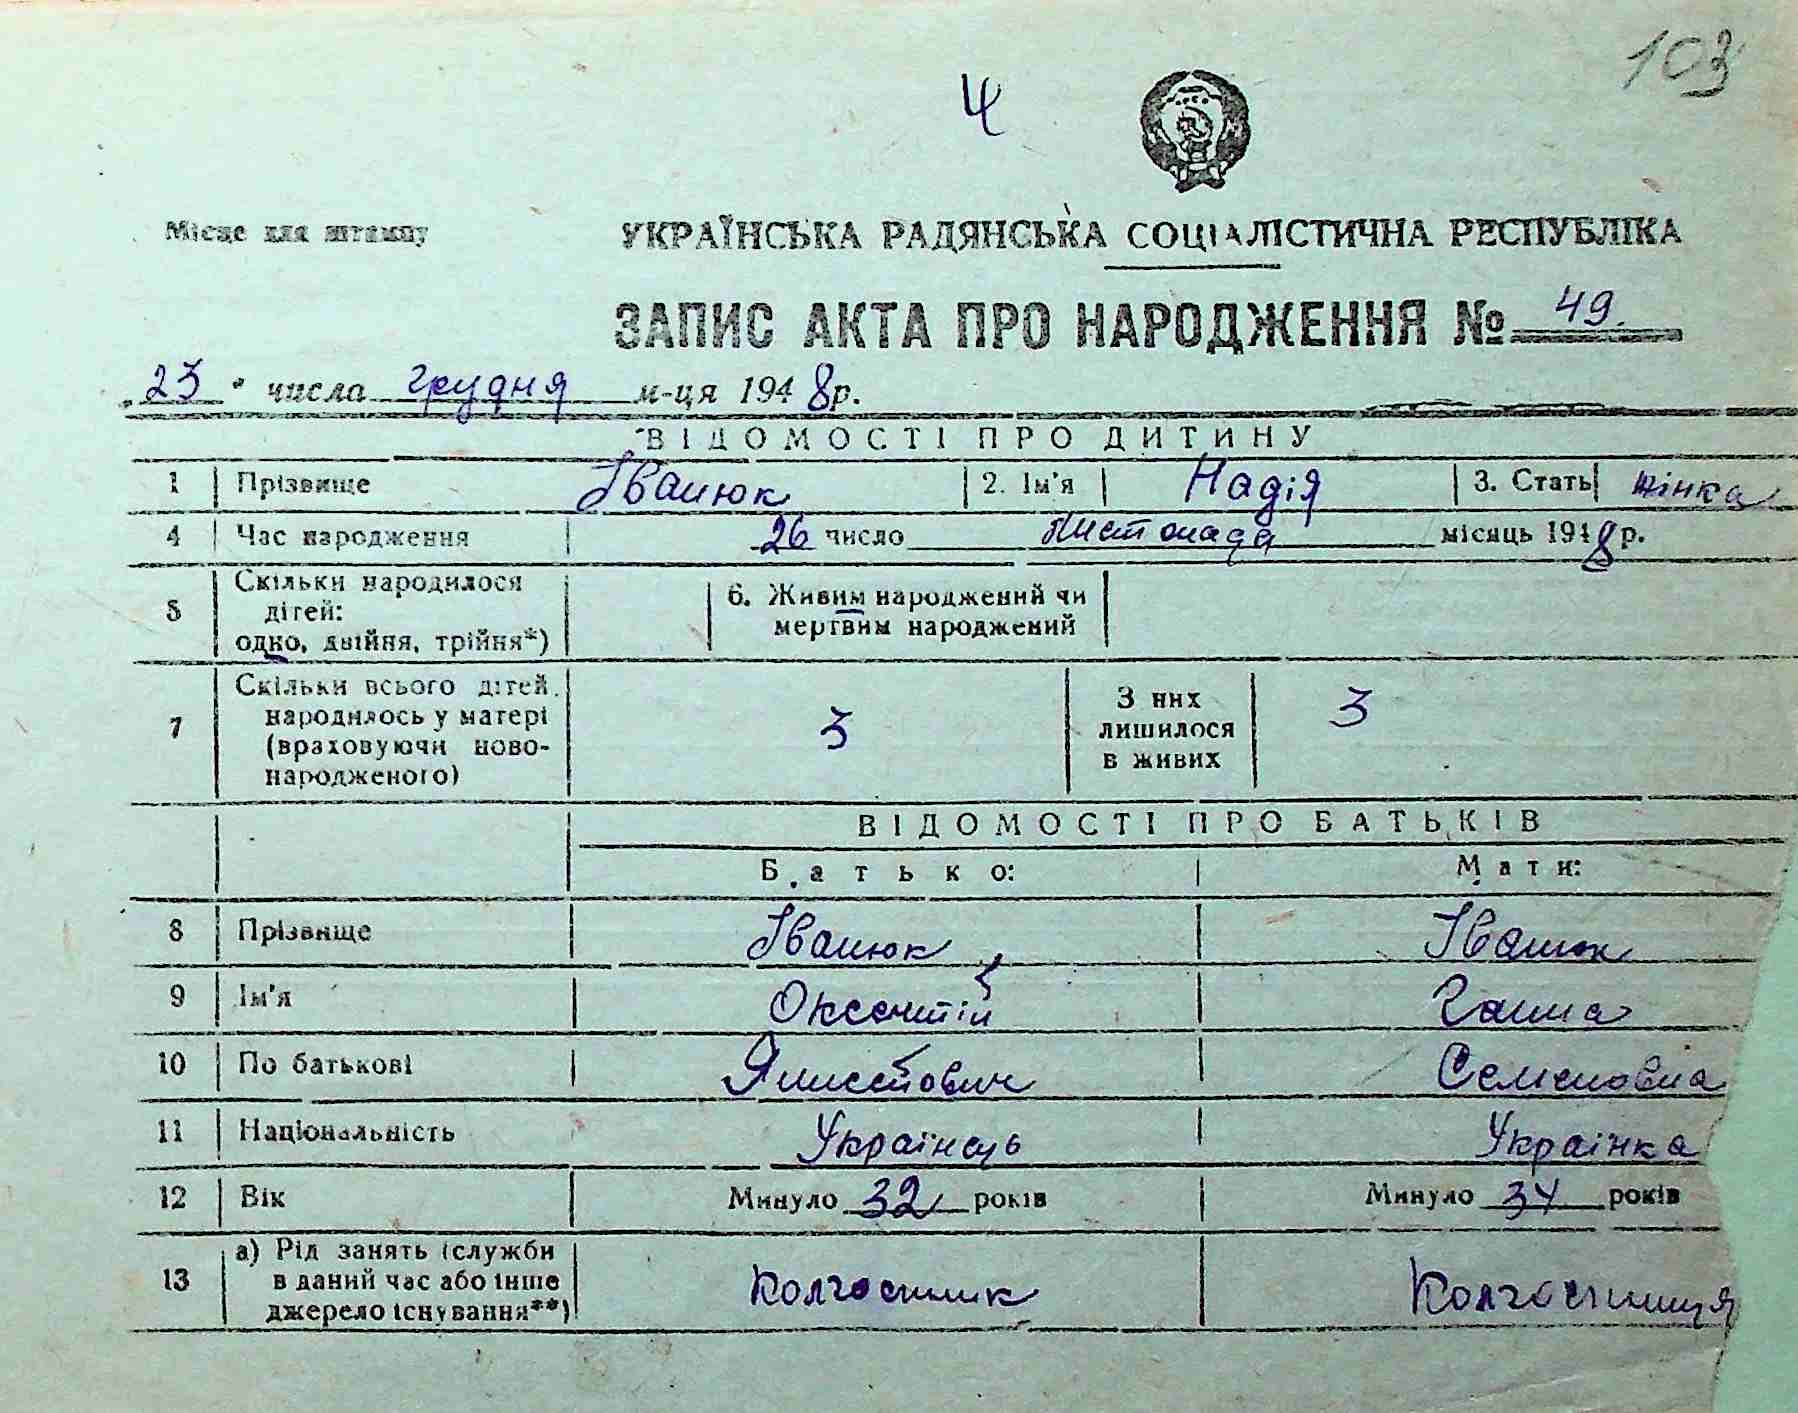 103
4
Місце для штампу
УКРАЇНСЬКА РАДЯНСЬКА СОЦІАЛІСТИЧНА РЕСПУБЛІКА
ЗАПИС АКТА ПРО НАРОДЖЕННЯ № 49.
„23" числа грудня м-ця 1948 р.
ВІДОМОСТІ ПРО ДИТИНУ
1 Прізвище Іванюк 2. Ім'я Надія 3. Стать жінка
4 Час народження 26 число Листопада місяць 1948 р.
5 Скільки народилося дітей: одно, двійня, трійня*) 6. Живим народжений чи мертвим народжений
7 Скільки всього дітей народилось у матері (враховуючи ново-народженого) 3 З них лишилося в живих 3
ВІДОМОСТІ ПРО БАТЬКІВ
Батько: Мати:
8 Прізвище Іванюк Іванюк
9 Ім'я Оксентій Ганна
10 По батькові Семеновна
11 Національність Українець Українка
12 Вік Минуло 32 років Минуло 34 років
13 а) Рід занять (служби в даний час або інше джерело існування**) Колгоспник Колгоспниця